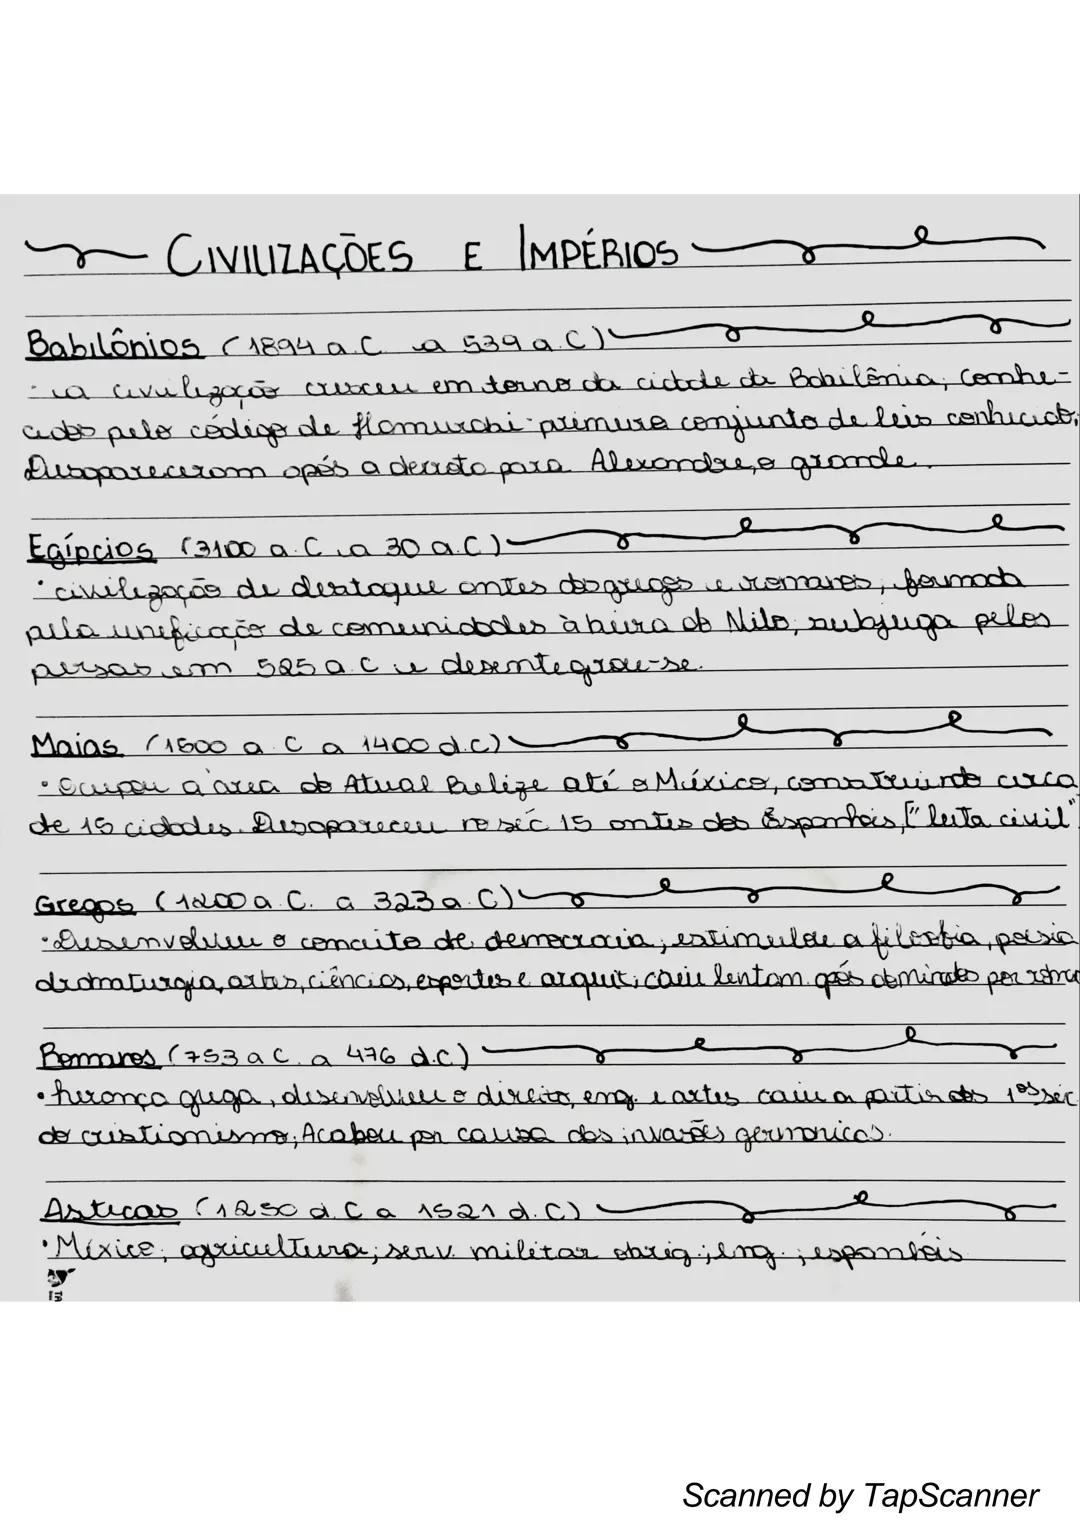 CIVILIZAÇÕES E IMPÉRIOS
Babilônios (1894 a.C. a 539 a.C)
- a civilização cresceu em torno da cidade da Babilônia; Conhe-
cidos pelo código de Hamurabi - primeiro conjunto de leis conhecido;
Desapareceram após a derrota para Alexandre, o grande.
Egípcios (3100 a.C. a 30 a.C)
• civilização de destaque antes dos gregos e romanos, formada
pela unificação de comunidades à beira do Nilo, subjuga pelos
persas em 525 a.C e desentegrou-se.
Maias (1500 a.C a 1400 d.c)
• Ocupou a área do Atual Belize até o México, construindo cerca
de 15 cidades. Desapareceu no séc 15 antes dos Espanhóis, ["luta civil"
Gregos (1200 a.C. a 323 a.C)
• Desenvolveu o conceito de democracia, estimulou a filosofia, poesia
dramaturgia, artes, ciências, esportes e arquit; caiu lentam. após dominados por
Romanos (753 a.C. a 476 d.c)
• herança grega, desenvolveu o direito, eng. e artes caiu a partir dos 1ºs séc
do cristianismo; Acabou por causa das invasões germanicas.
Astecas (1250 d.C a 1521 d.C)
• México; agricultura; serv. militar obrig; eng.; espanhóis
Scanned by TapScanner